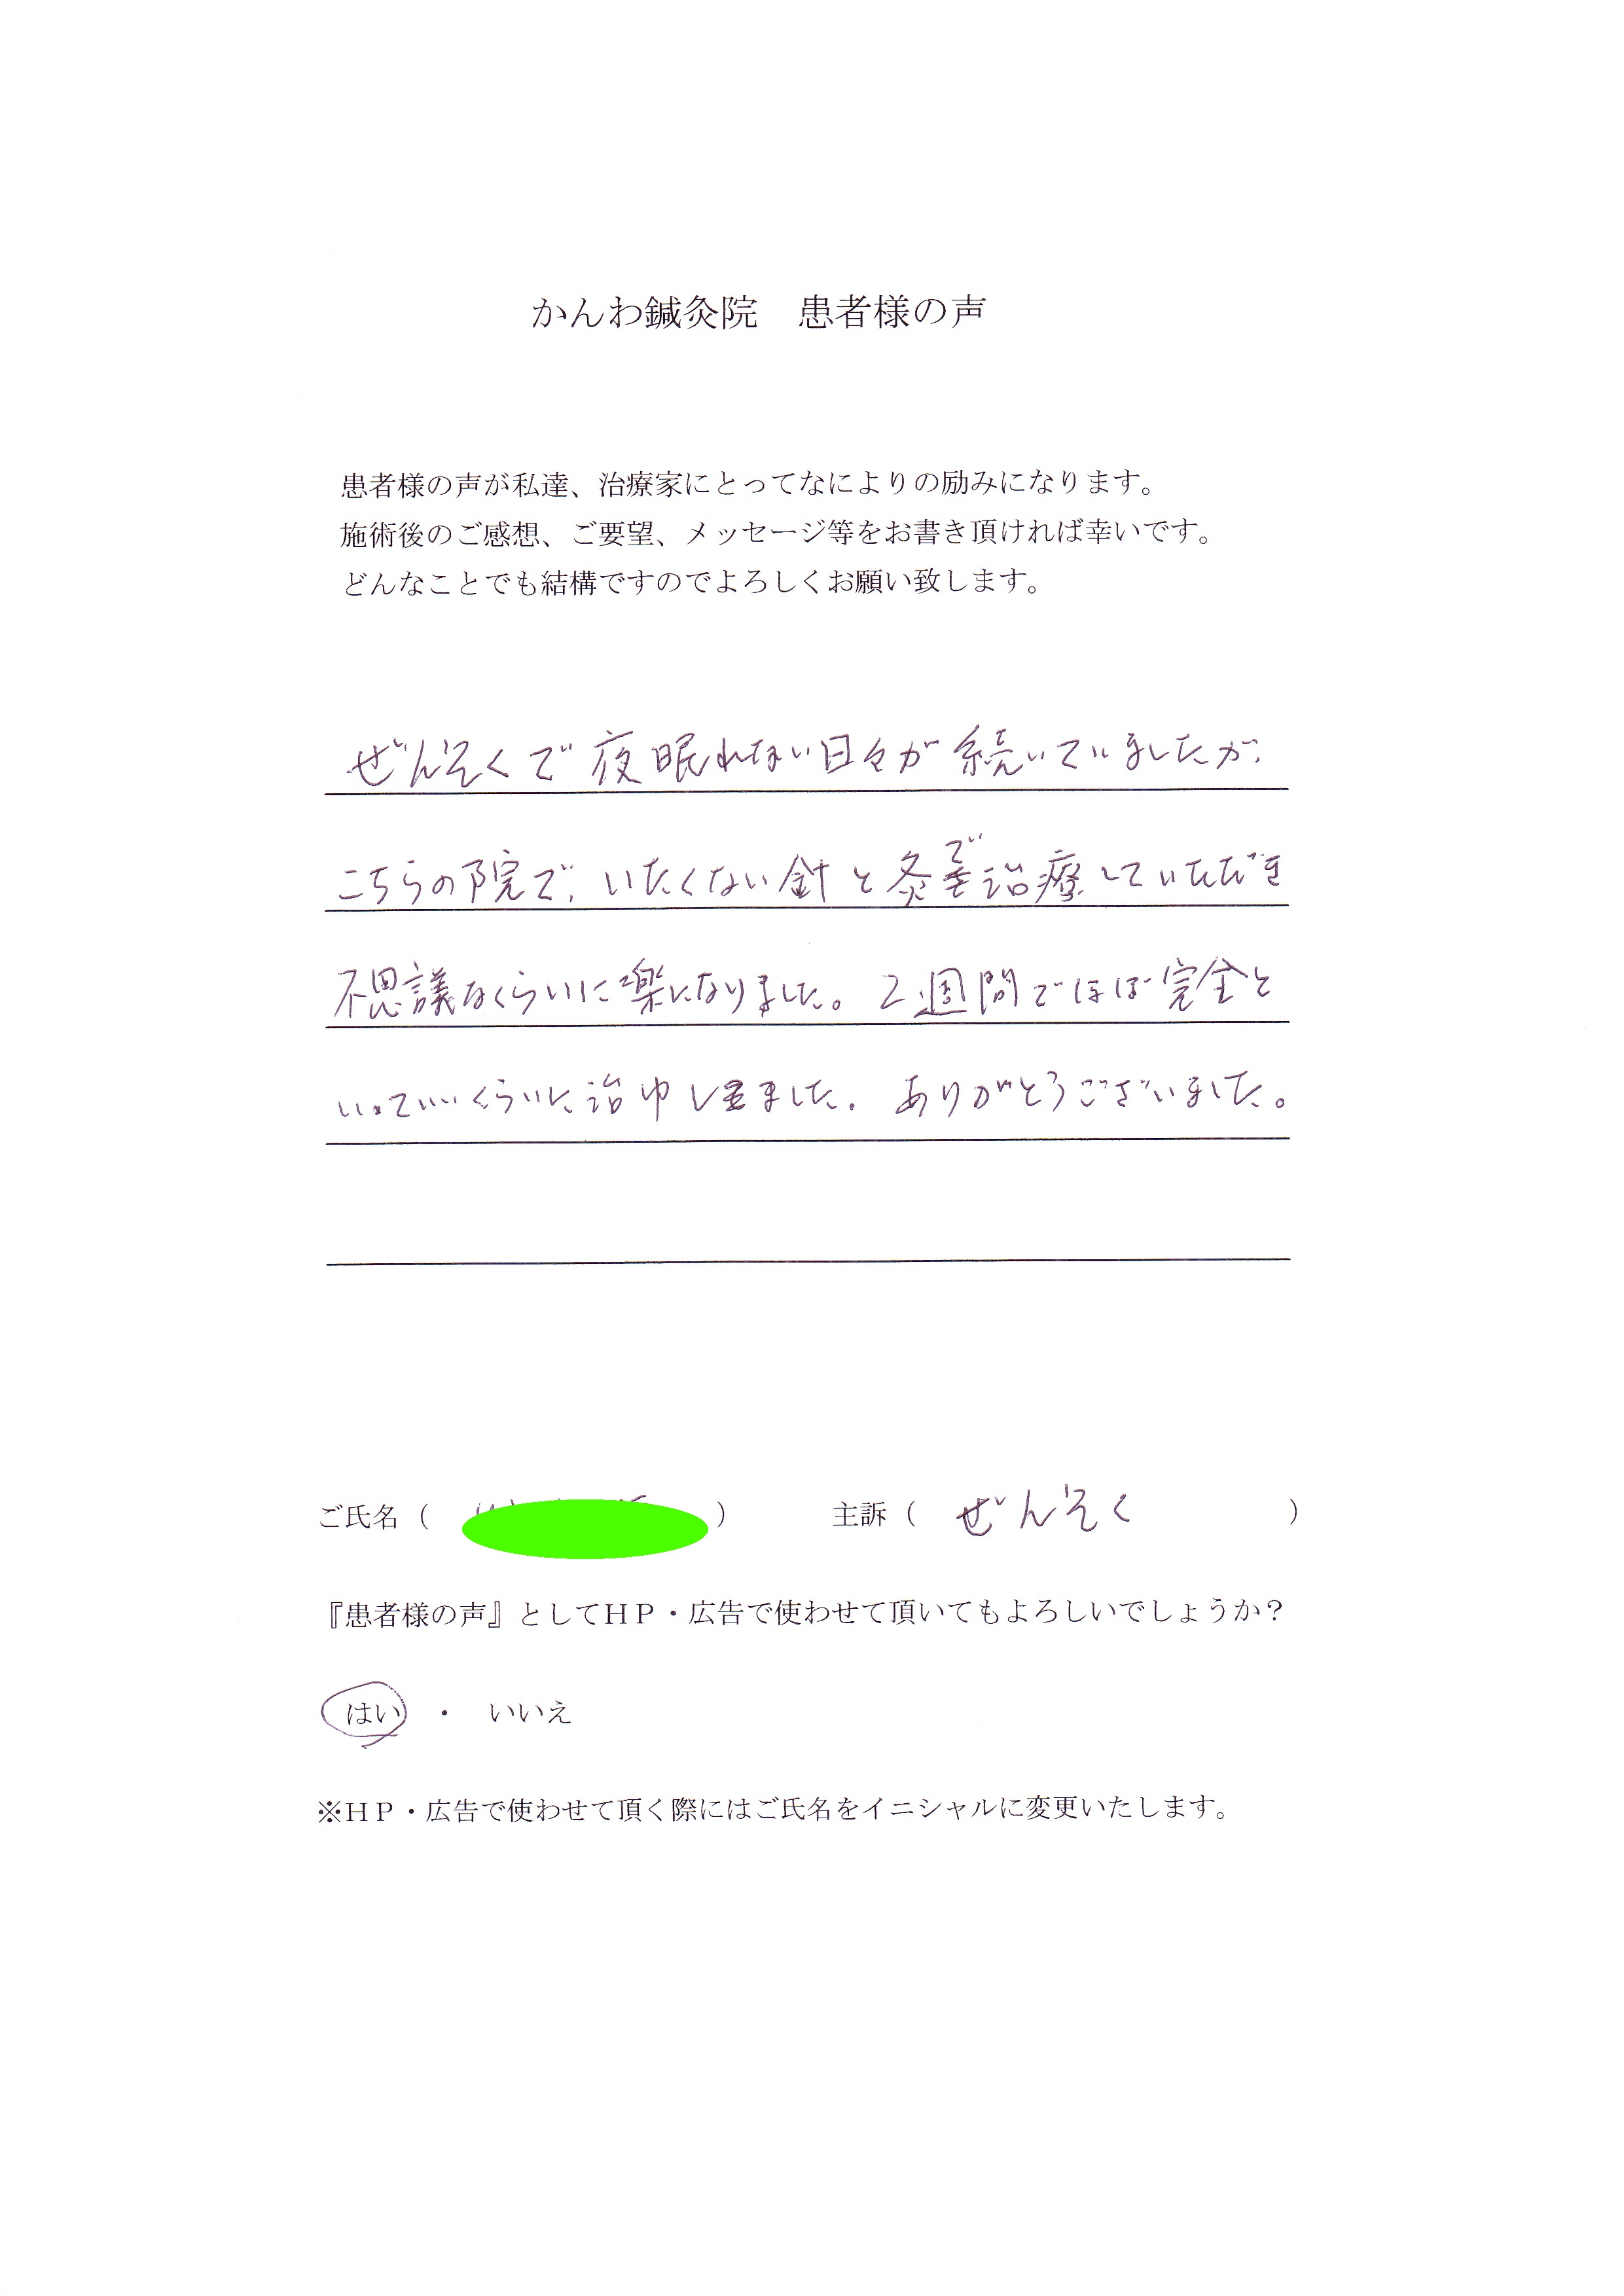 かんわ鍼灸院　患者様の声
患者様の声が私達、治療家にとってなによりの励みになります。
施術後のご感想、ご要望、メッセージ等をお書き頂ければ幸いです。
どんなことでも結構ですのでよろしくお願い致します。
ぜんそくで夜眠れない日々が続いていましたが、
こちらの院で、いたくない針と灸で治療していただき
不思議なくらいに楽になりました。2週間でほぼ完全と
いっていいくらいに治ゆしました。ありがとうございました。
ご氏名（　　　）　主訴（　ぜんそく　）
『患者様の声』としてＨＰ・広告で使わせて頂いてもよろしいでしょうか？
はい　・　いいえ
※ＨＰ・広告で使わせて頂く際にはご氏名をイニシャルに変更いたします。